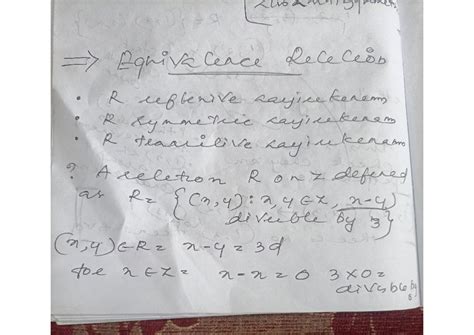 ⇒ Equivalence Relation
• R reflexive aayirukenam
• R symmetric aayirukenam
• R transitive aayirukenam
? A relation R on Z defined
as R = {(x,y): x,y ∈ Z, x-y
divisible by 3}
(x,y) ∈ R = x-y = 3d
for x ∈ Z = x-x = 0 3×0=
divisible by